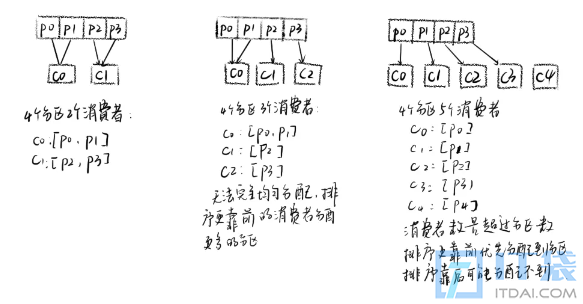 p0 p1 p2 p3
C0 C1
4个分区2个消费者:
C0:[p0, p1]
C1:[p2, p3]
p0 p1 p2 p3
C0 C1 C2
4个分区3个消费者
C0: [p0, p1]
C1: [p2]
C2: [p3]
无法完全均匀分配,排
序更靠前的消费者分配
更多的分区
p0 p1 p2 p3
C0 C1 C2 C3 C4
4个分区5个消费者
C0: [p0]
C1: [p1]
C2: [p2]
C3: [p3]
C4: [p4]
消费者数量超过分区数
排序更靠前优先分配到分区
排序靠后可能分配不到
IT老
ITDAI.COM